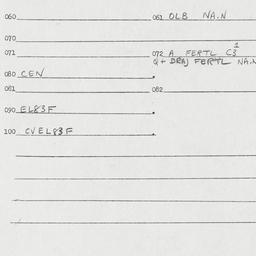 060 061 OLB NA.N
070
071 072 A FERTL C31
Q + DRAJ FERTL NA.N
080 CEN
081 082
090 EL83F
100 CVEL83F